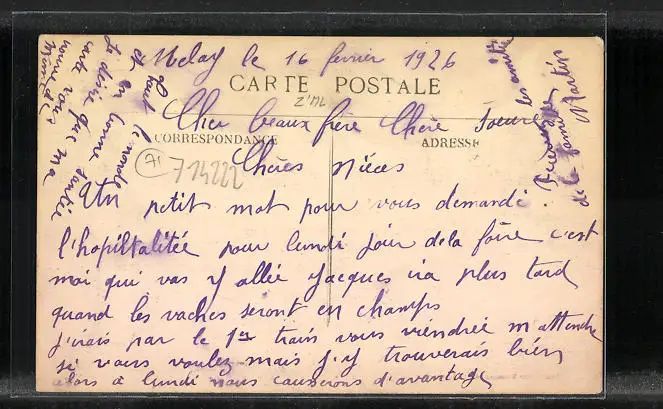 Melay le 16 fevrier 1926
CARTE POSTALE
Z'ML
Cher beaux frère Chère Soeure
CORRESPONDANCE
ADRESSE
71
714222
Chères Nièces
Un petit mot pour vous demandé
l'hopiltalitée pour lundi soir de la foire c'est
moi qui vas y allée Jacques ira plus tard
quand les vaches seront en champs
j'irais par le 1er train vous viendrée m'attendre
si vous voulez mais j'y trouverais bien
alors à lundi nous causerons d'avantage
Je désire que ma
carte vous
trouve
en bonne santée
tout le monde
les amitiés
de la famille Martin